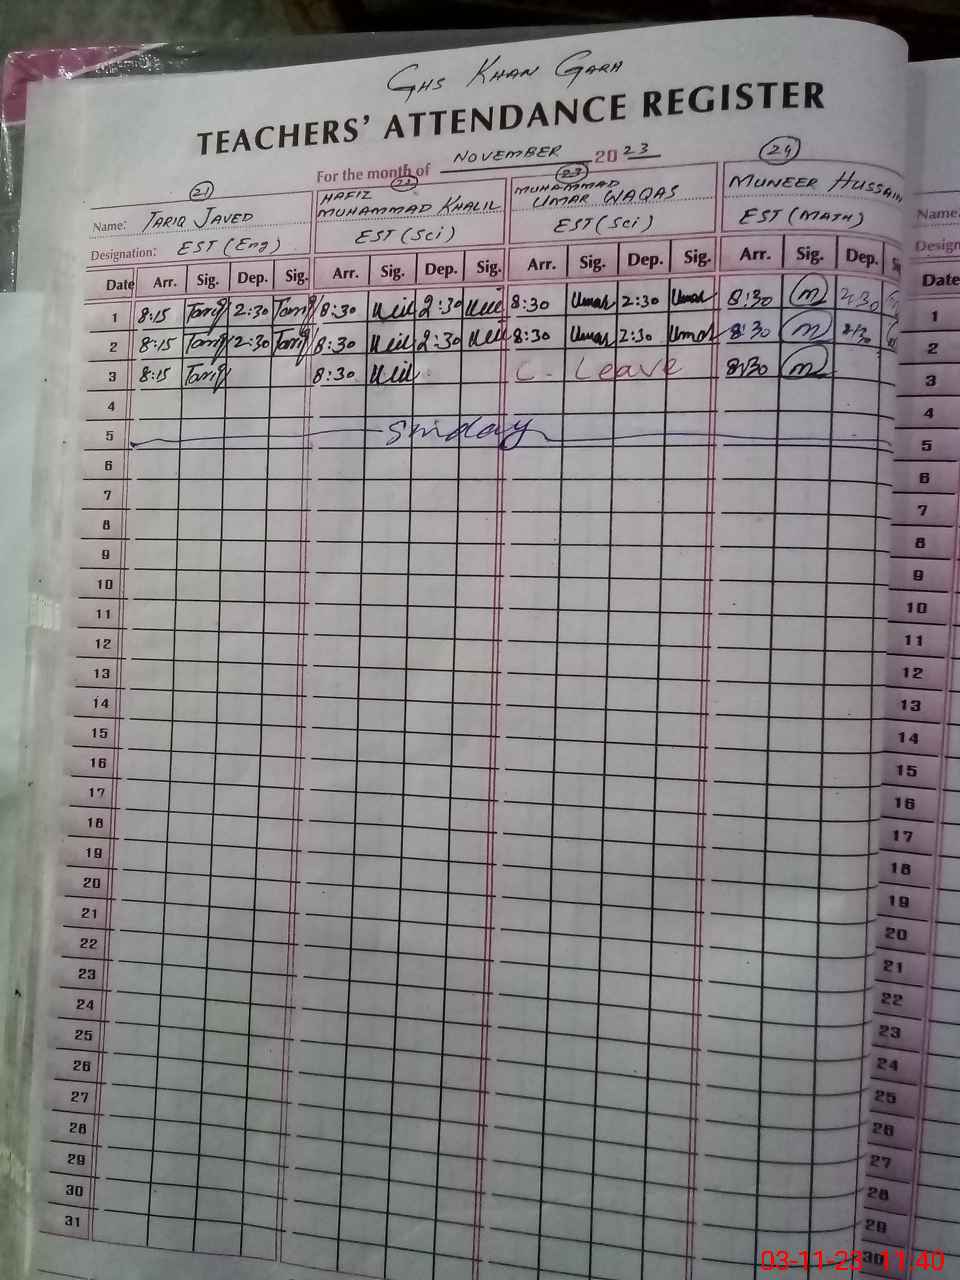 GHS KHAN GARH
TEACHERS' ATTENDANCE REGISTER
For the month of NOVEMBER 2023
21 22 23 24
Name: TARIQ JAVED HAFIZ MUHAMMAD KHALIL MUHAMMAD UMAR WAQAS MUNEER HUSSAIN Name:
Designation: EST (Eng) EST (Sci) EST (Sci) EST (MATH) Design
Date Arr. Sig. Dep. Sig. Arr. Sig. Dep. Sig. Arr. Sig. Dep. Sig. Arr. Sig. Dep. Date
1 8:15 Tariq 2:30 Tariq 8:30 2:30 8:30 Umar 2:30 Umar 8:30 m 2:30 1
2 8:15 Tariq 2:30 Tariq 8:30 2:30 8:30 Umar 2:30 Umar 8:30 m 2
3 8:15 Tariq 8:30 C. Leave 8:30 m 3
4 4
5 Sunday 5
6 6
7 7
8 8
9 9
10 10
11 11
12 12
13 13
14 14
15 15
16 16
17 17
18 18
19 19
20 20
21 21
22 22
23 23
24 24
25 25
26 26
27 27
28 28
29 29
30 30
31
03-11-23 11:40